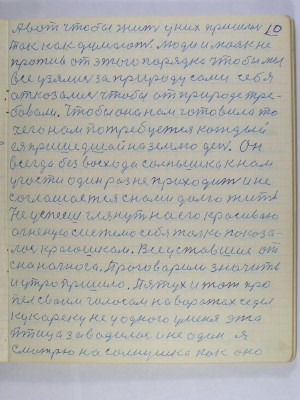 10
А вот чтобы жить у них пришлось
так как думают. Люди и моль не
против от этого порядка чтобы мы
все взялись за природу сами себя
отказались чтобы от природе тре-
бовали. Чтобы она нам готовила то
чего нам потребуется каждый
пришедшай на землю ден. Он
всегда без восхода солнышка к нам
у гости один раз не приходит и не
соглашается с нами долго жить
Не успеиш глянуть на его красивою
огненую себя только показа-
лос краюшкам. Все уставшие от
сна на ногах. Проговарим значить
и утро пришло. Пятух и тот про
пел своим голосам на варатах седя
кукареку не у одного у меня эта
птица заводилас и не один я
смотрю на солнушка как оно